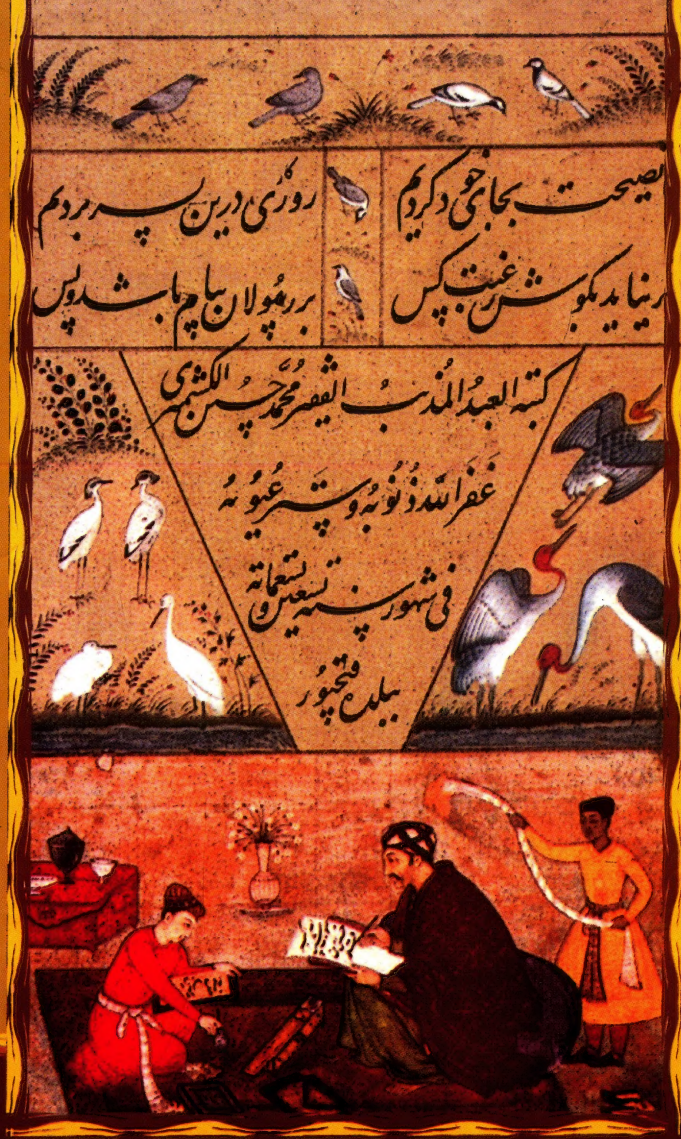 نصیحت بجای خود کردیم روزگاری درین بسر بردیم
نیاید بگوش رغبت کس بر رسولان پیام باشد و بس
کتبه العبد المذنب الفقیر محمد حسین الکشمیری
غفر الله ذنوبه و ستر عیوبه
فی شهور سنه تسعین و تسعمائه
ببلده فتحپور